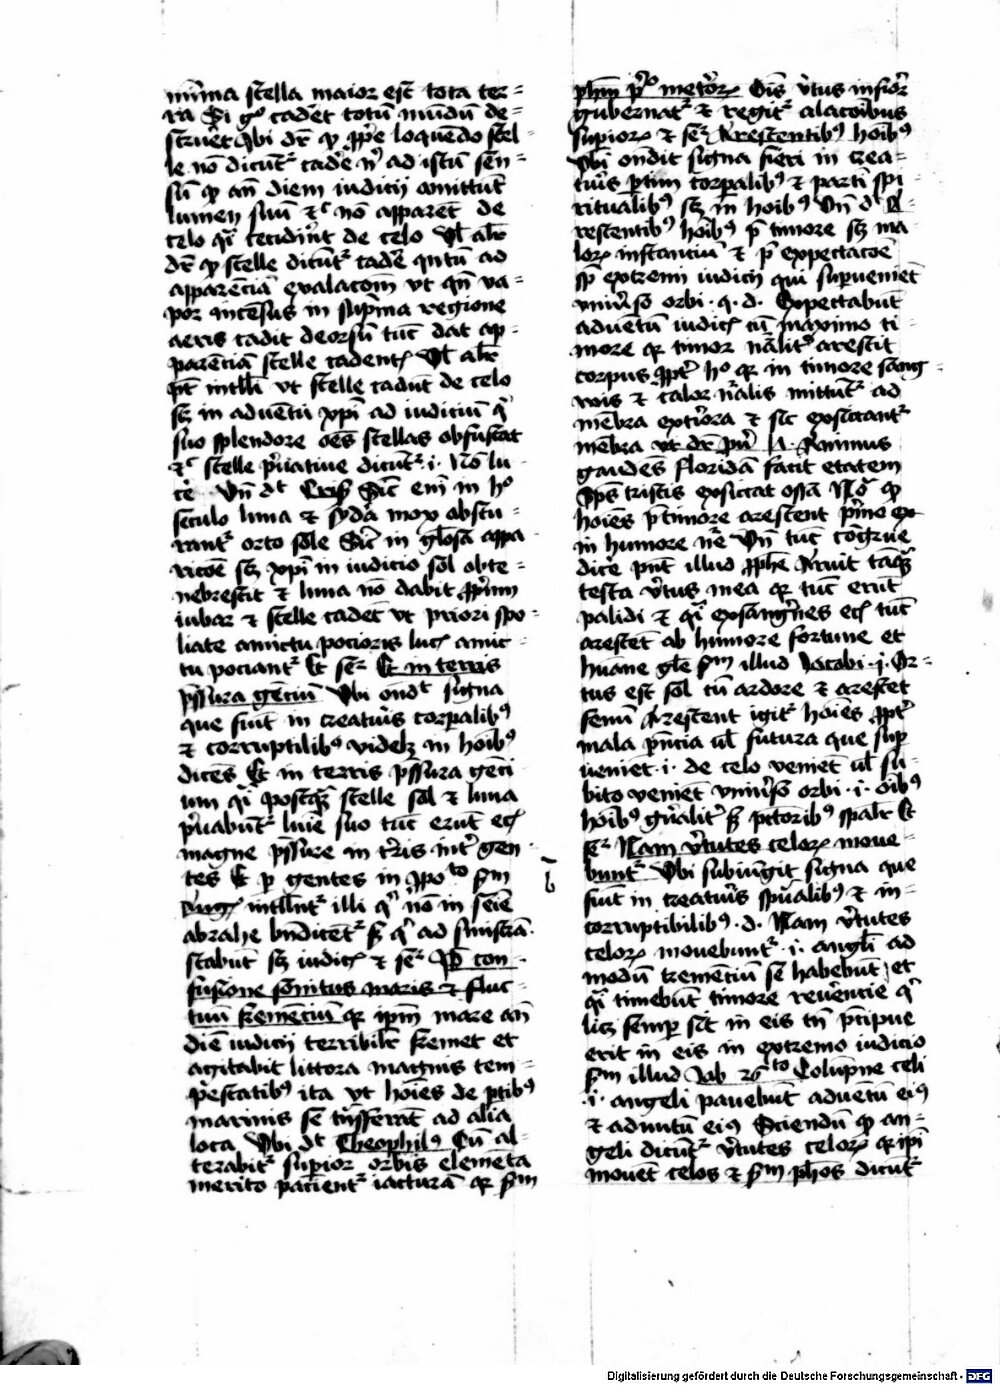 mīma stella maior est tota ter=
ra Si gͦ cadēt totū mūdū de=
struēt Ubi dr̄ ꝙ ꝓpͥe loquēdo stel=
le nō dicūtᷣ cadͤe nͥ ad istū sen=
sū ꝙ an̄ diem iudicij amittūt
lumen suū ⁊ c̄ nō apparēt de
celo qͣi cecidͥnt de celo Ul̄ al̄r
dr̄ ꝙ stelle dicūtᷣ cadͤe qntū ad
apparēciā evalacōm vt qn̄ va=
por incēsus in supͥma regione
aeris cadit deorsū tūc dat ap=
parēciā stelle cadentꝭ Ul̄ al̄r
pt̄ intll̄i vt stelle cadūt de celo
sꝫ in aduētu xp̄i ad iudiciū qͥ
suo splendore oēs stellas obfuscat
⁊ c̄ stelle pͥuatiue dicūtᷣ .i. Nō lu=
cē Un̄ dt Crisꝰ Sic̄ eni in hͦ
seculo luna ⁊ sydͣa mox obscu=
rantᷣ orto sole Sic̄ in gl̄osa appa=
ricōe sꝫ xp̄i in iudicio sol obte=
nebrescit ⁊ luna nō dabit ꝓpͥum
iubar ⁊ stelle cadēt vt priori spo=
liate amictu pocioris lucꝭ amic=
tu pociantᷣ Et seᷣ Et in terris
p̄ssura genciū Ubi ondt signa
que fiūt in creatuͥs corpalibꝰ
⁊ corruptilibꝰ videlꝫ in hoībꝰ
dicēs Et in terris p̄ssura genci=
um qͣi postqͣꝫ stelle sol ⁊ luna
pͥuabūtᷣ luīe suo tūc erūt ecͥ
magne p̄ssure in tͤris intͤ gen=
tes Et ꝑ gentes in ꝓpoto sm̄
Augꝰ intlln̄tᷣ illi qͥ nō in seīe
abrahe bn̄dicētᷣ sꝫ qͥ ad sinistrā
stabūt sꝫ iudicꝭ ⁊ seᷣ P̄ con=
fusione sonitus maris ⁊ fluc=
tuū fremēciū qꝛ ipm̄ mare an̄
diē iudicij terribilͬ fremet et
agitabit littora magnis tem=
pͤstatibꝰ ita vt hoīes de ꝑtibꝰ
marinis se tͣnsferāt ad alia
loca Ubi dt Theophilꝰ Cū al=
terabitᷣ superior orbis elemēta
merito pacientᷣ iacturā qꝛ sm̄
phm̄ pͦ metͤorꝝ Oīs vͥtus inferiͦr
gubernatᷣ ⁊ regitᷣ a lacōibus
supiorꝝ ⁊ seᷣ Arescentibꝰ hoībꝰ
Ubi ondit signa fieri in crea=
tuͥs ꝑtim corpalibꝰ ⁊ parti spi=
ritualibꝰ sꝫ in hoībꝰ Un̄ dt A=
rescentibꝰ hoībꝰ p̄ timore sꝫ ma=
lorꝝ instanciū ⁊ p̄ expectacōe
sꝫ extremi iudicij qui supueniet
vniuͤso orbi .q.d. Expectabūt
aduētū iudicꝭ cū maximo ti=
more qꝛ timor nāliter arescit
corpus ꝓptͤ hͦ qꝛ in timore sang=
wis ⁊ calor nͣalis mittūtᷣ ad
mēbra extͤiora ⁊ sic exsiccantᷣ
mēbra vt dr̄ puͤ Animus
gaudēs floridā facit etatem
Sps̄ tristis exsiccat ossa Nͦ ꝙ
hoīes p̄ timore arescent pͥmo ex
in humore nͤe Un̄ tūc congrue
dicͤe pn̄t illud ꝓphe Aruit tāqͣꝫ
testa vͥtus mea qꝛ tūc erūt
palidi ⁊ qͣi exsangͥnes ecꝭ tūc
arescēt ab humore fortune et
huāne gle sm̄ illud Jacobi .i. Or=
tus est sol cū ardore ⁊ arefcet
fenū Arescent igitᷣ hoīes ꝓptͤ
mala pn̄cia ul̄ futura que sup
ueniet .i. de celo veniēt ul̄ su=
bito veniet vniuͤso orbi .i. oībꝰ
hoībꝰ gn̄alitͤ sꝫ pctoribꝰ spalͬ Et
seᷣ Nam vͥtutes celorꝝ moue=
buntᷣ Ubi subiūgit signa que
fiūt in creatuͥs spūalibꝰ ⁊ in=
corruptibilibꝰ .d. Nam vͥtutes
celorꝝ mouebuntᷣ .i. angli ad
modū tremēciū se habebūt et
qͣi timebūt timore reuͤencie qͥ
licꝫ semp sit in eis tn̄ p̄cipue
erit in eis in extremo iudicio
sm̄ illud Iob 26to Colūpne celi
.i. angeli pauebūt aduētū eiꝰ
⁊ ad nutū eiꝰ Sciendū ꝙ an=
geli dicūtᷣ vͥtutes celorꝝ qꝛ ipͥ
mouēt celos ⁊ sm̄ phos dicūtᷣ
Digitalisierung gefördert durch die Deutsche Forschungsgemeinschaft - DFG